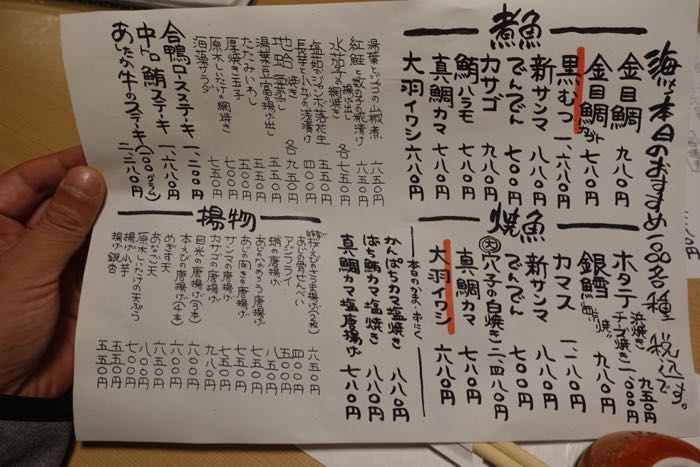 海い本日のおすすめ一品各種 税込です。
煮魚
金目鯛 九八〇円
金目鯛カット 七八〇円
黒むつ 一、六八〇円
新サンマ 八八〇円
でんでん 七〇〇円
カサゴ 九八〇円
鮪ハラモ 七八〇円
真鯛カマ 七八〇円
大羽イワシ 六八〇円
焼魚
ホタテ 浜焼き 九五〇円
チーズ焼き 一、〇〇〇円
銀鱈 九八〇円
カマス 一、二八〇円
新サンマ 八八〇円
でんでん 七〇〇円
大 穴子の白焼き 二、四八〇円
真鯛カマ 七八〇円
大羽イワシ 六八〇円
本日のかま・かぶと
かんぱちカマ塩焼き 八八〇円
ばち鮪カマ塩焼き 八八〇円
真鯛カマ塩唐揚げ 七八〇円
湯葉とジャコの山椒煮 六五〇円
紅鮭と数の子の糀漬け 六五〇円
水茄子 揚げ出し
網焼き 各七五〇円
長芋と小茄子の浅漬け 六五〇円
塩茹でジャンボ落花生 四〇〇円
地合 焼き 各九五〇円
地蛤 酒蒸し
湯葉豆富の揚げ出し 五五〇円
たたみいわし 五五〇円
厚焼き玉子 七〇〇円
原木しいたけの網焼き 七五〇円
海藻サラダ 七五〇円
合鴨ロースステーキ 一、一八〇円
中トロ鮪ステーキ 一、六八〇円
あしたか牛のステーキ(一〇〇グラム) 二、二八〇円
揚物
桜えびのかき揚げ(2枚) 六五〇円
あじの骨せんべい 四〇〇円
アジフライ 五〇〇円
蛸の唐揚げ 八五〇円
あじのなめろう唐揚げ 七五〇円
あじの開き唐揚げ 五五〇円
サンマの唐揚げ 九八〇円
カサゴの唐揚げ 九八〇円
目光の唐揚げ(3本) 六〇〇円
本えびの唐揚げ(4本) 六〇〇円
めぎす天 六〇〇円
あなご天 八〇〇円
原木しいたけの天ぷら 七〇〇円
揚げ小芋 五五〇円
揚げ銀杏 五五〇円